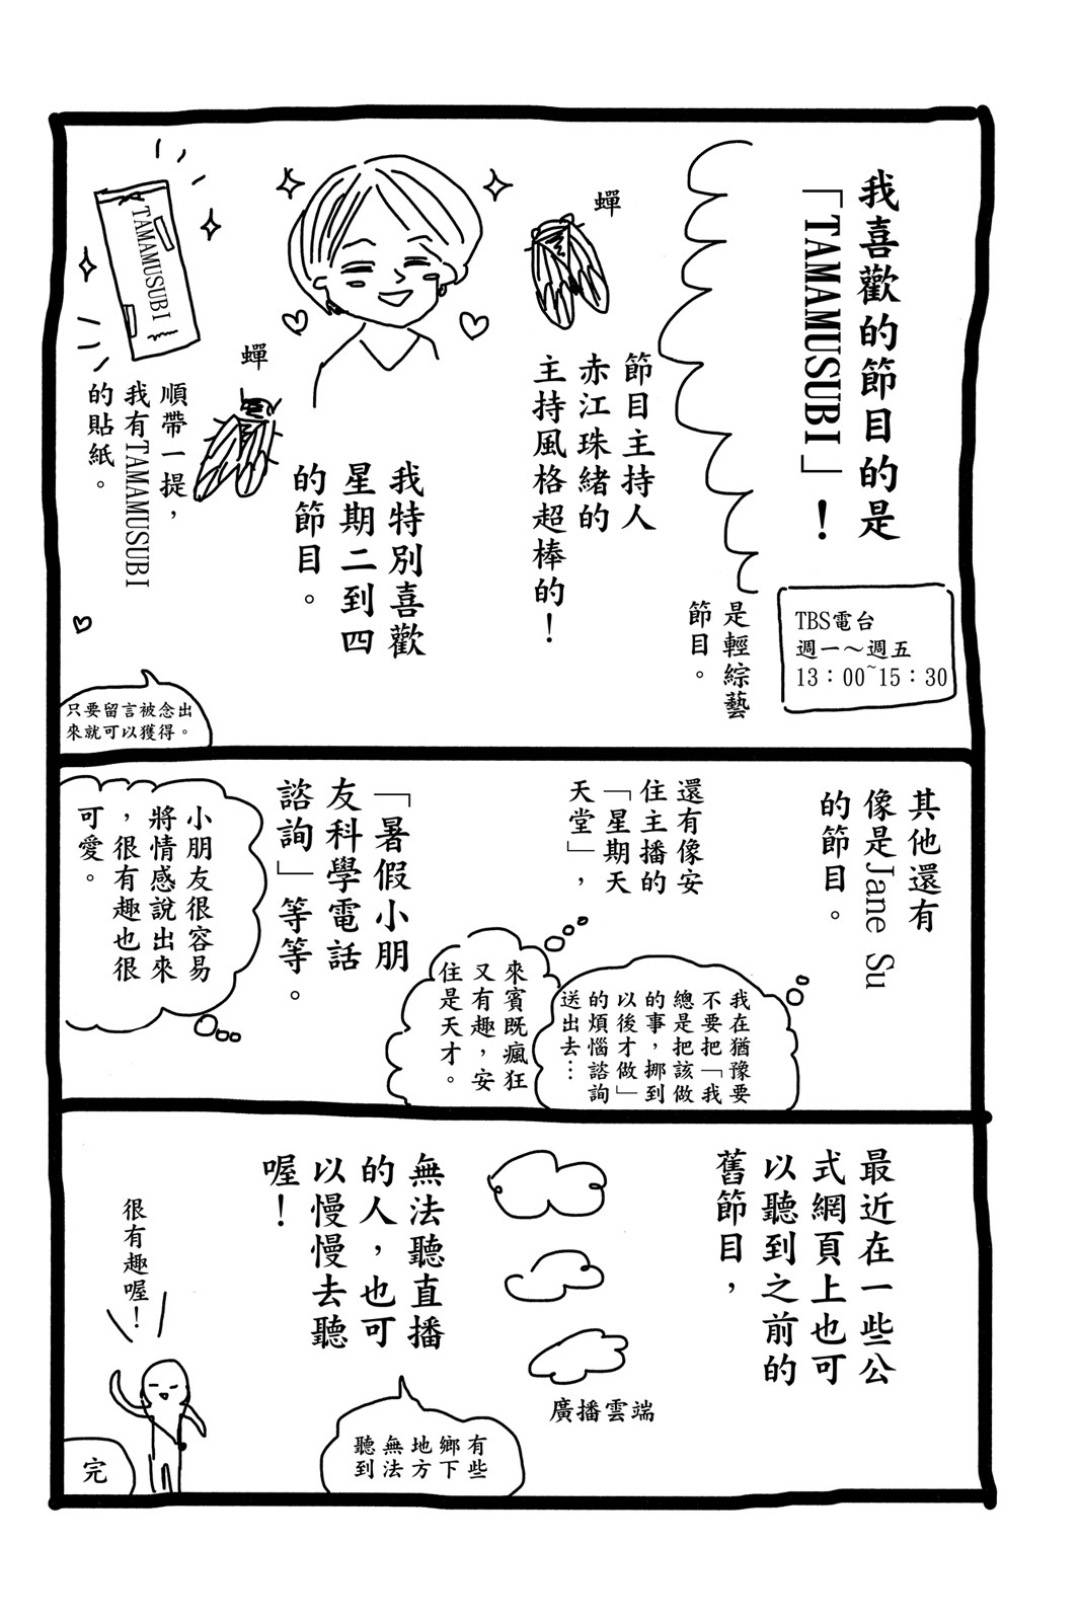 我喜歡的節目的是
「TAMAMUSUBI」！
TBS電台
週一～週五
13：00~15：30
是輕綜藝
節目。
蟬
節目主持人
赤江珠緒的
主持風格超棒的！
我特別喜歡
星期二到四
的節目。
蟬
TAMAMUSUBI
順帶一提，
我有TAMAMUSUBI
的貼紙。
只要留言被念出
來就可以獲得。
其他還有
像是Jane Su
的節目。
我在猶豫要
不要把「我
總是把該做
的事，挪到
以後才做」
的煩惱諮詢
送出去…
還有像安
住主播的
「星期天
天堂」，
來賓既瘋狂
又有趣，安
住是天才。
「暑假小朋
友科學電話
諮詢」等等。
小朋友很容易
將情感說出來
，很有趣也很
可愛。
最近在一些公
式網頁上也可
以聽到之前的
舊節目，
廣播雲端
無法聽直播
的人，也可
以慢慢去聽
喔！
有些
鄉下
地方
無法
聽到
很有趣喔！
完